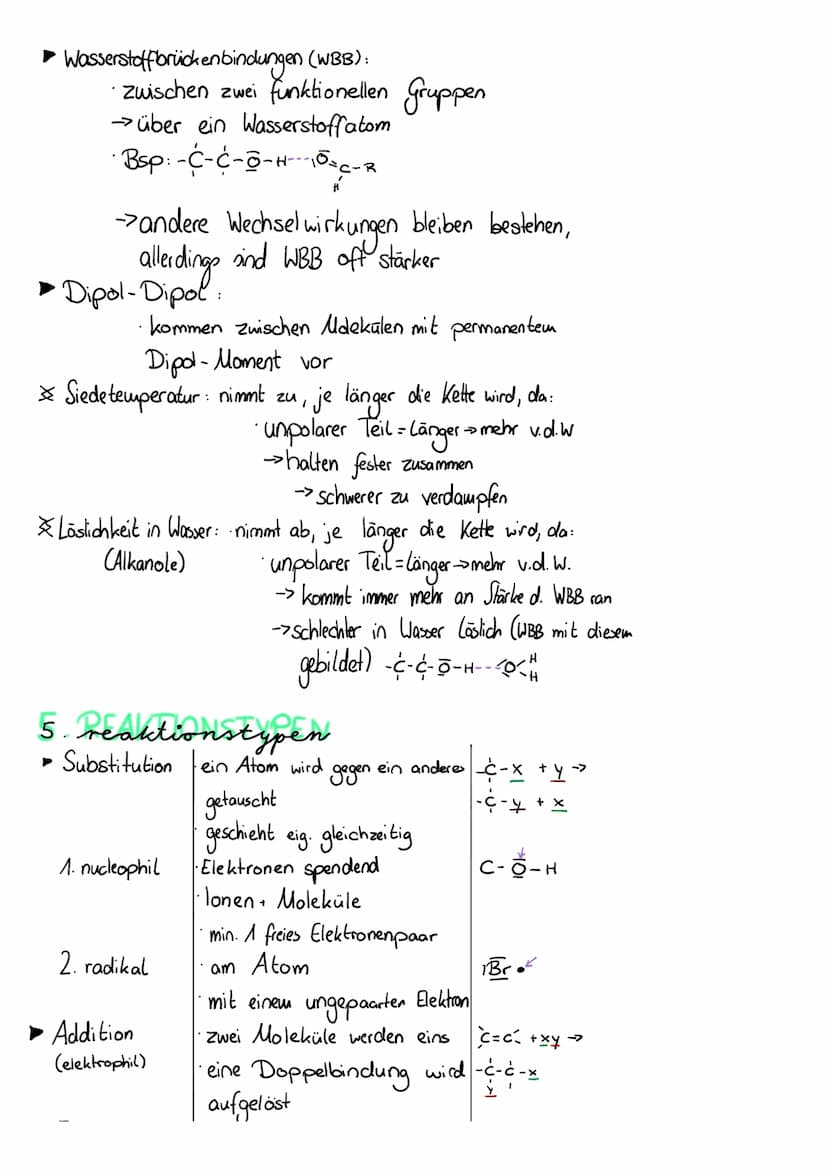 ▶ Wasserstoffbrückenbindungen (WBB):
· zwischen zwei funktionellen Gruppen
→ über ein Wasserstoffatom
· Bsp: -C-C-O-H---O=C-R
H
→ andere Wechselwirkungen bleiben bestehen,
allerdings sind WBB oft stärker
▶ Dipol-Dipol:
· kommen zwischen Molekülen mit permanentem
Dipol-Moment vor
Siedetemperatur: nimmt zu, je länger die Kette wird, da:
· unpolarer Teil = Länger → mehr v.d.W
→ halten fester zusammen
→ schwerer zu verdampfen
Löslichkeit in Wasser: · nimmt ab, je länger die Kette wird, da:
(Alkanole) · unpolarer Teil = Länger → mehr v.d.W.
→ kommt immer mehr an Stärke d. WBB ran
→ schlechter in Wasser löslich (WBB mit diesem
gebildet) -C-C-O-H---O<H H
5. REAKTIONSTYPEN
reaktionstypen
▶ Substitution · ein Atom wird gegen ein anderes -C-x + y →
getauscht -C-y + x
· geschieht eig. gleichzeitig
1. nucleophil · Elektronen spendend C-O-H
· Ionen + Moleküle
· min. 1 freies Elektronenpaar
2. radikal · am Atom Br •
· mit einem ungepaarten Elektron
▶ Addition · zwei Moleküle werden eins C=C + xy →
(elektrophil) · eine Doppelbindung wird -C-C-x
aufgelöst y